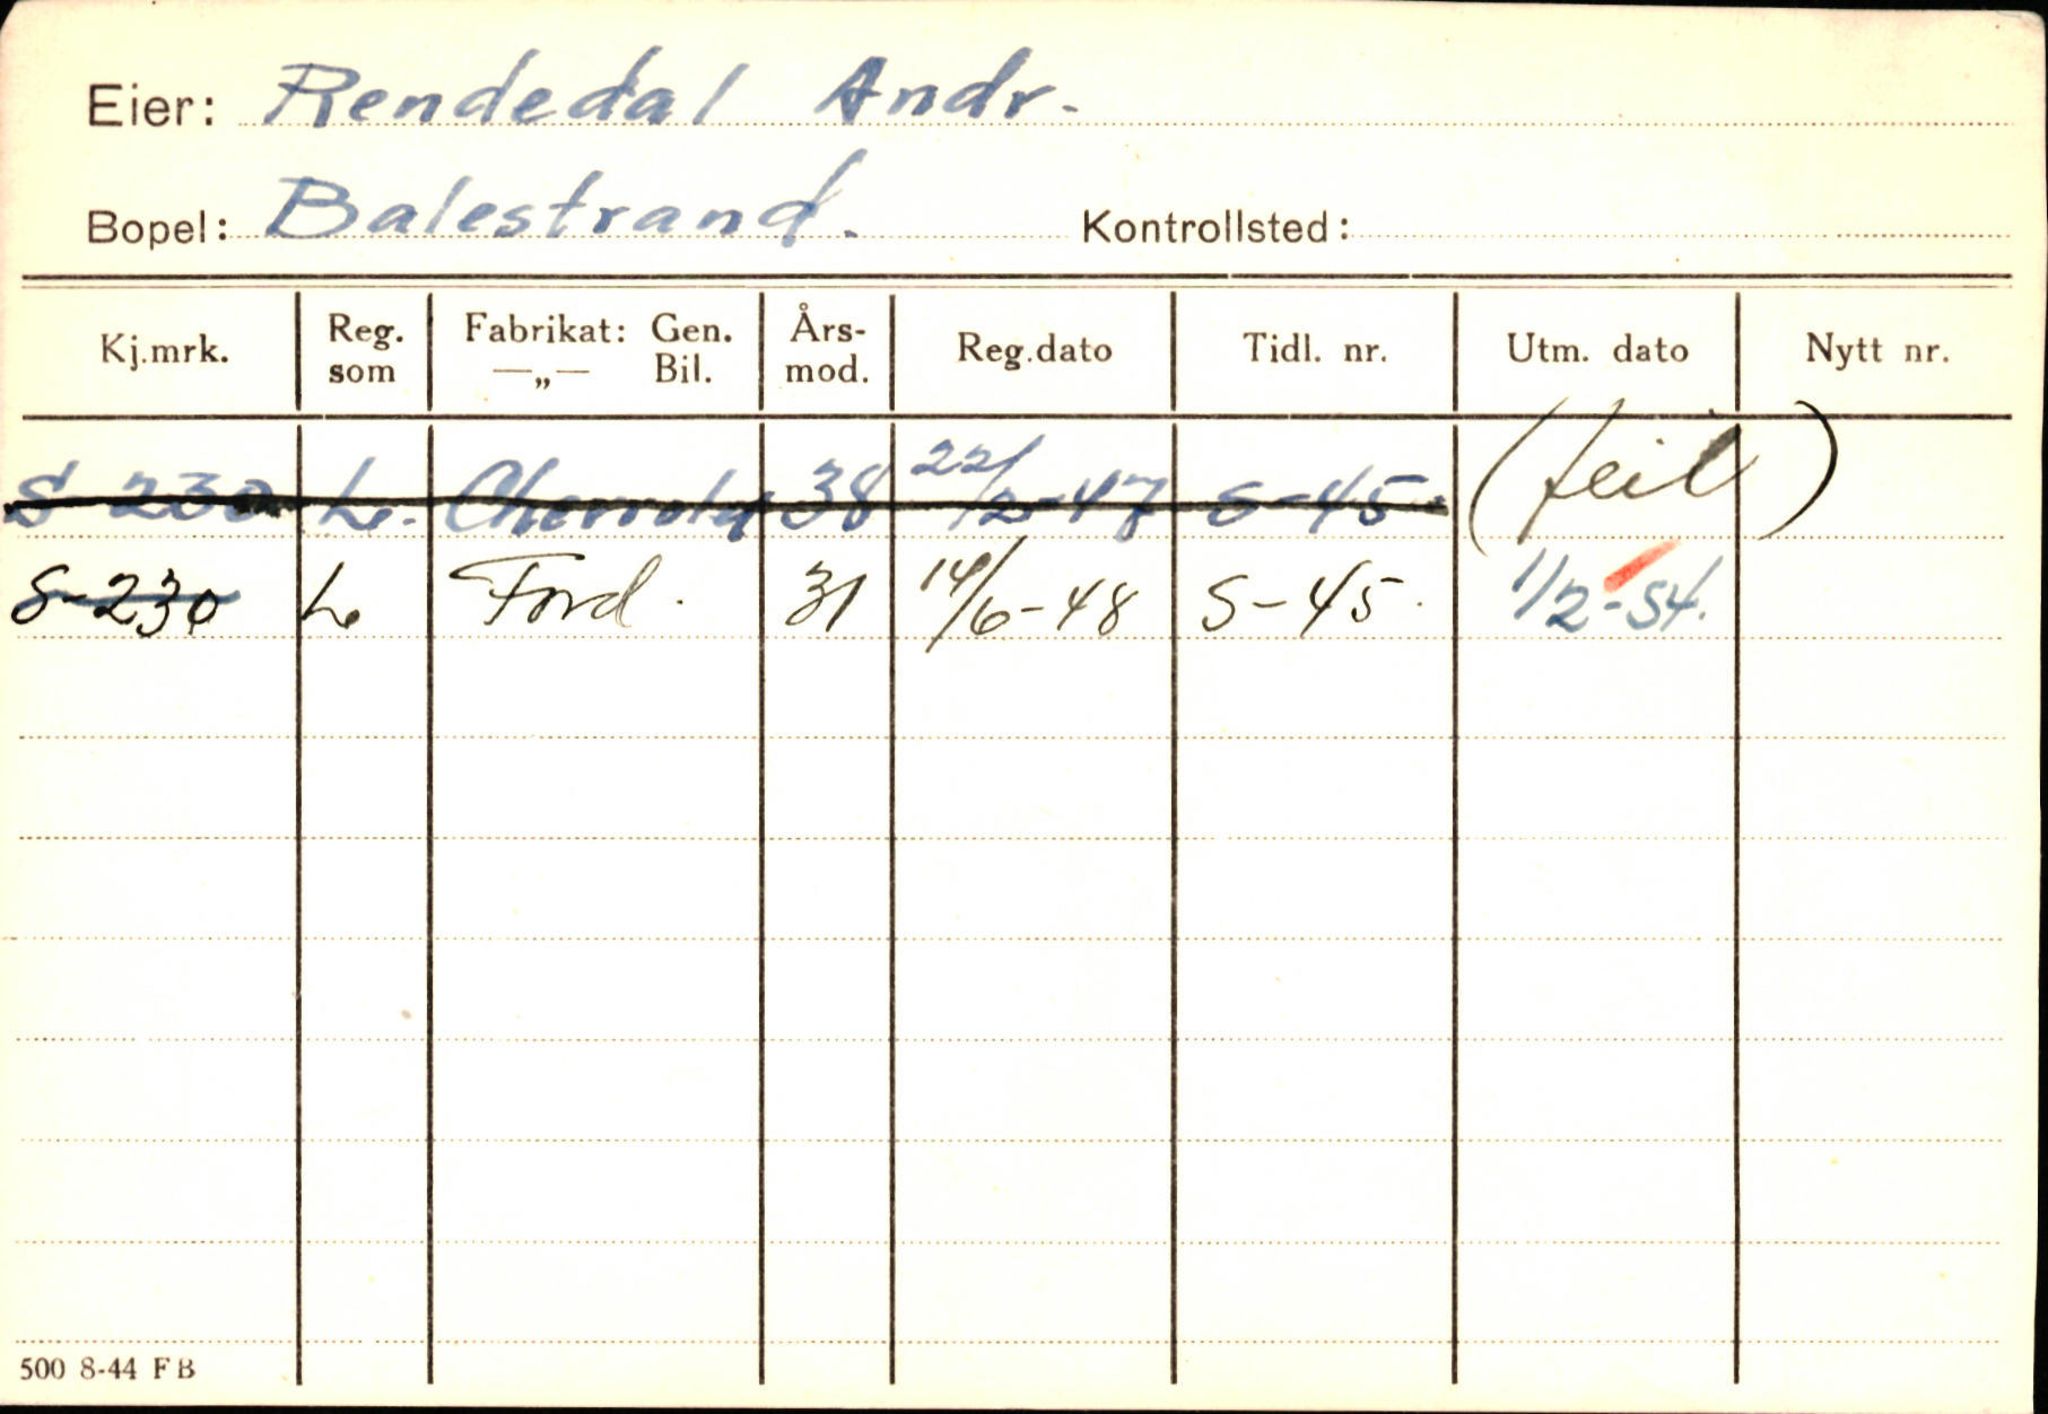 Eier: Rendedal Andr.
Bopel: Balestrand. Kontrollsted:
Kj.mrk. Reg. som Fabrikat: Gen. —„— Bil. Års- mod. Reg.dato Tidl. nr. Utm. dato Nytt nr.
S-230 L. Chevrolet 38 22/2-47 S-45 (feil)
S-230 L. Ford. 31 14/6-48 S-45. 1/2-54.
500 8-44 FB